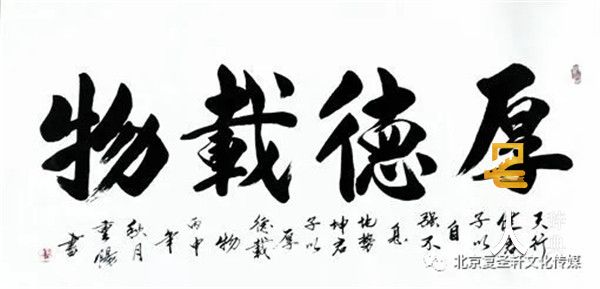 厚德载物
天行
健君
子以
自
强不
息
地势
坤君
子以
厚
德载
物
丙申
年
秋月
重阳
书
北京复圣轩文化传媒